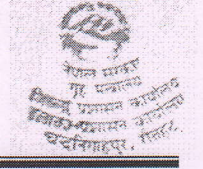 नेपाल सरकार
गृह मन्त्रालय
जिल्ला प्रशासन कार्यालय
इलाका प्रशासन कार्यालय
चन्द्रनिगाहपुर, रौतहट